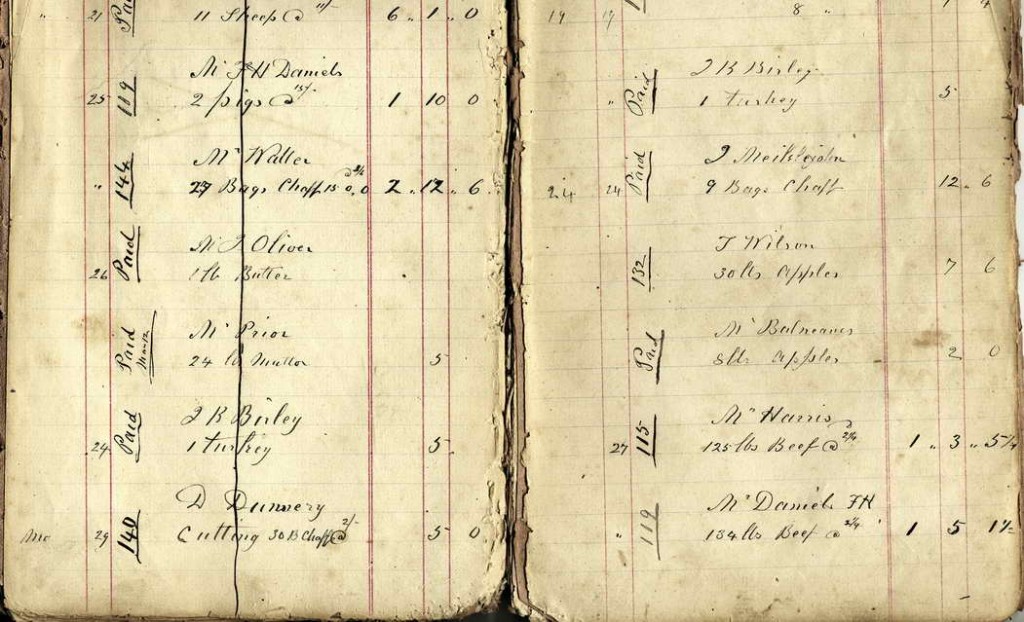 21 Paid 11 Sheep @ 6 " 1 " 0
25 119 Mr F H Daniels
2 pigs @ 15/- 1 10 0
" 144 Mr Walter
Bags Chaff 2 " 12 " 6
26 Paid Mr J Oliver
1 lb Butter
Paid Mr Prior
24 lb Mutton 5
24 Paid J K Birley
1 turkey 5
D Dunnery
29 140 Cutting 30 B Chaff @ 2/- 5 0
19 19 8 "
J K Birley
" Paid 1 turkey 5
J
24 24 Paid 9 Bags Chaff 12 " 6
T Wilson
132 30 lbs Apples 7 6
Mr Balneaves
Paid 8 lbs Apples 2 0
Mr Harris
27 115 125 lbs Beef @ 2¼ 1 " 3 " 5¼
Mr Daniels F H
" 119 134 lbs Beef @ 2¼ 1 5 1½